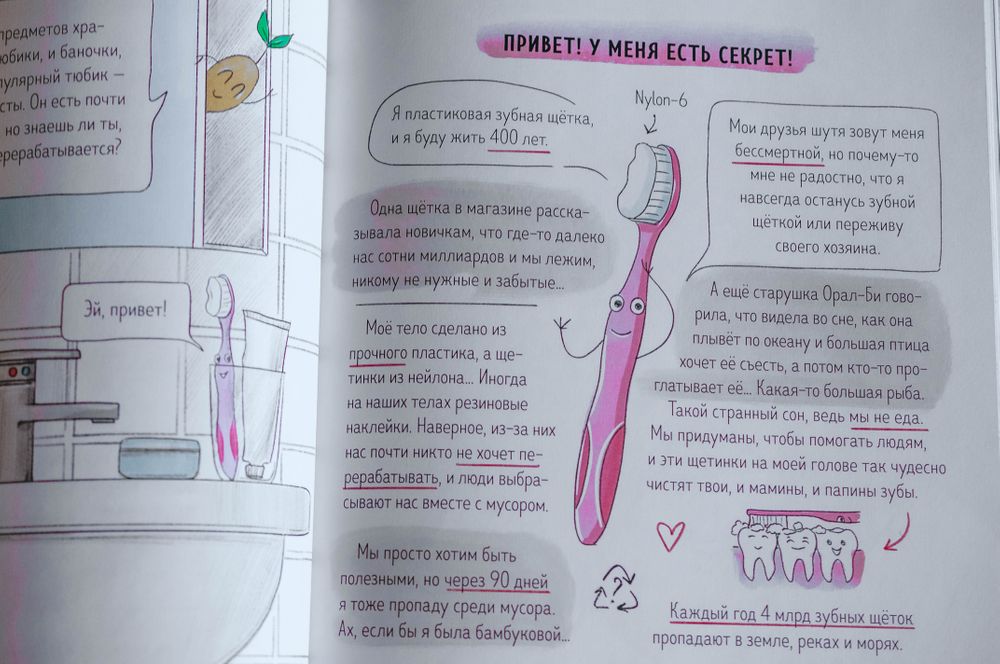 предметов хра-
юбики, и баночки,
пулярный тюбик —
сты. Он есть почти
но знаешь ли ты,
ерерабатывается?
Эй, привет!
ПРИВЕТ! У МЕНЯ ЕСТЬ СЕКРЕТ!
Я пластиковая зубная щётка,
и я буду жить 400 лет.
Nylon-6
Мои друзья шутя зовут меня
бессмертной, но почему-то
мне не радостно, что я
навсегда останусь зубной
щёткой или переживу
своего хозяина.
Одна щётка в магазине расска-
зывала новичкам, что где-то далеко
нас сотни миллиардов и мы лежим,
никому не нужные и забытые...
Моё тело сделано из
прочного пластика, а ще-
тинки из нейлона... Иногда
на наших телах резиновые
наклейки. Наверное, из-за них
нас почти никто не хочет пе-
рерабатывать, и люди выбра-
сывают нас вместе с мусором.
Мы просто хотим быть
полезными, но через 90 дней
я тоже пропаду среди мусора.
Ах, если бы я была бамбуковой...
А ещё старушка Орал-Би гово-
рила, что видела во сне, как она
плывёт по океану и большая птица
хочет её съесть, а потом кто-то про-
глатывает её... Какая-то большая рыба.
Такой странный сон, ведь мы не еда.
Мы придуманы, чтобы помогать людям,
и эти щетинки на моей голове так чудесно
чистят твои, и мамины, и папины зубы.
?
Каждый год 4 млрд зубных щёток
пропадают в земле, реках и морях.